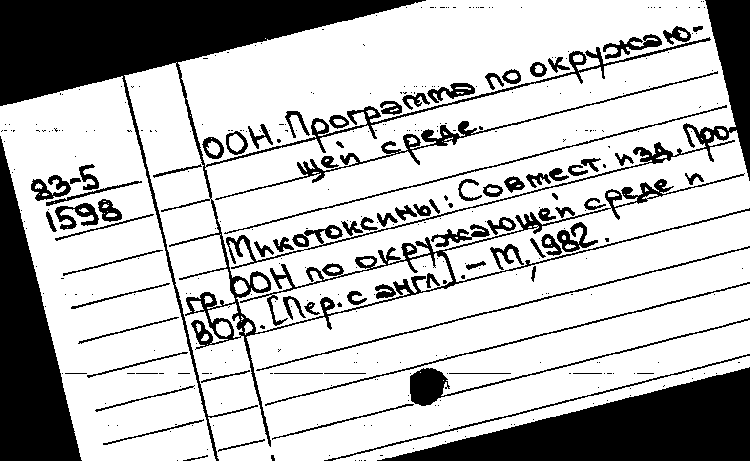 ООН. Программа по окружаю-
щей среде.
83-5
1598
Микотоксины: Совмест. изд. Про-
гр. ООН по окружающей среде и
ВОЗ. [Пер. с англ.]. - М., 1982.